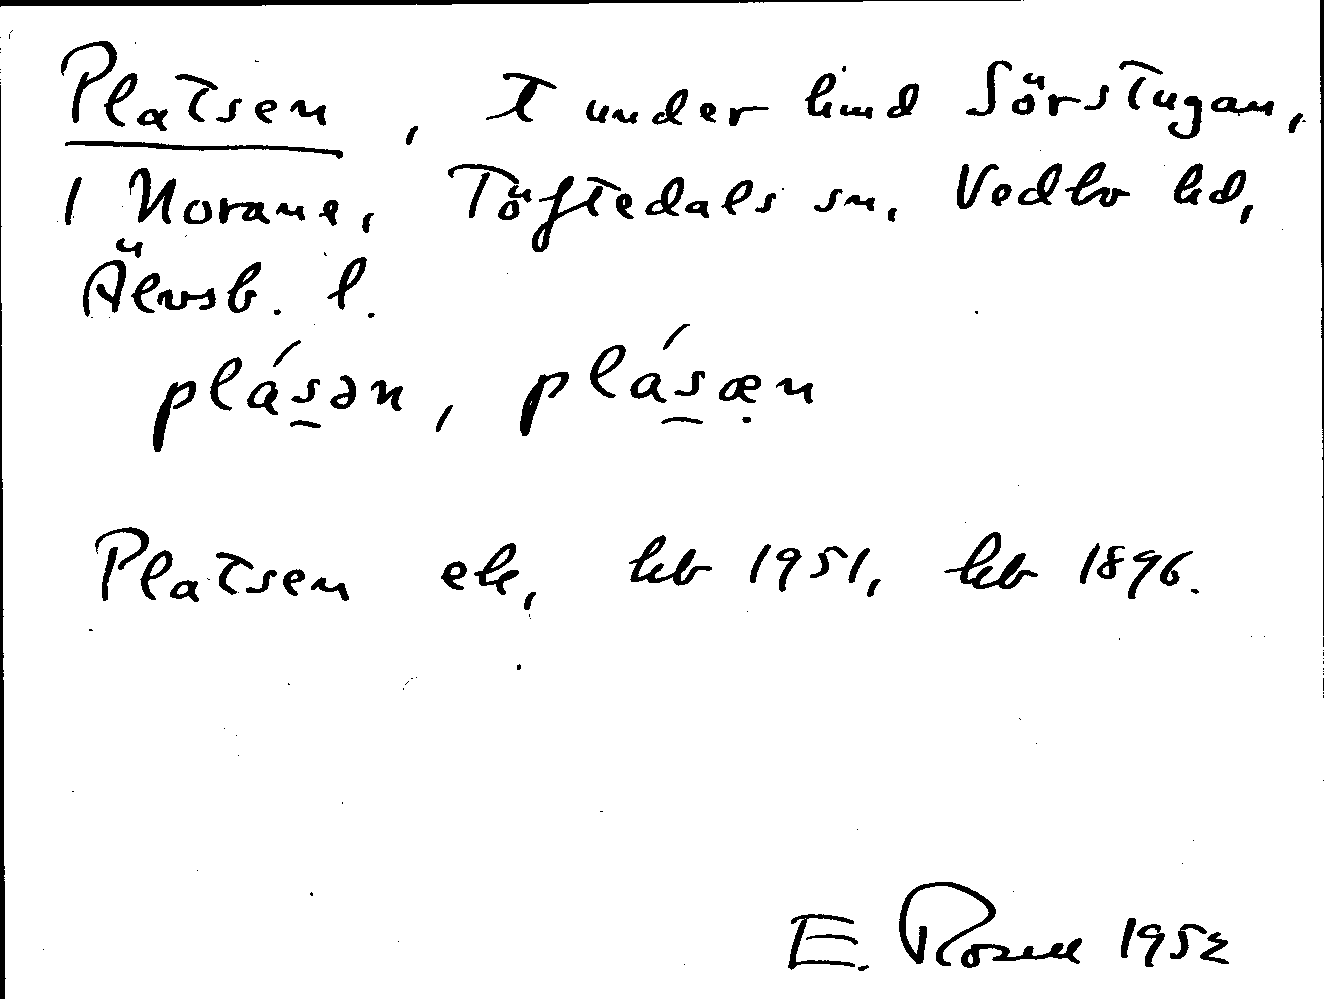 Platsen, t under hmd Sörstugan,
1 Norane, Töftedals sn, Vedbo hd,
Älvsb. l.
plás̠ən, plás̠æ̣n
Platsen ek, hb 1951, hb 1896.
E. Rosell 1952